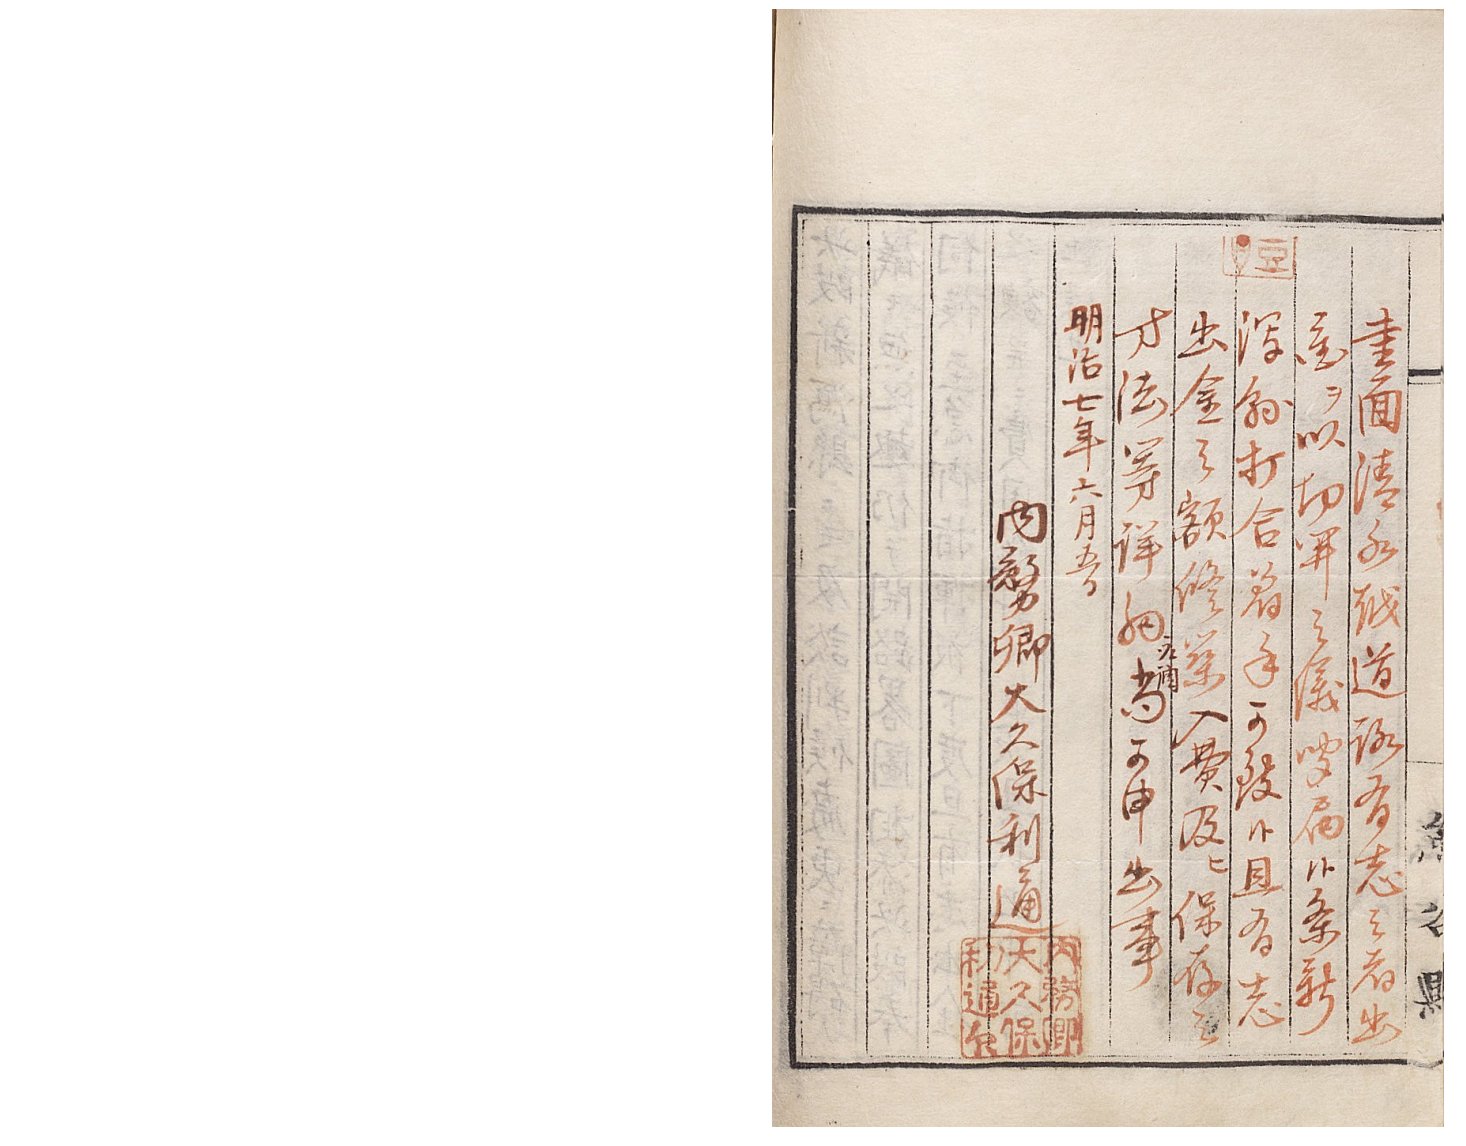 書面清水越道路有志之者出
金ヲ以切開之儀聞届候条新
潟県打合着手可致候且有志
出金之額修築入費及ヒ保存之
方法等詳細尚可申出事
明治七年六月五日
内務卿大久保利通
内務卿大久保利通印
熊谷県